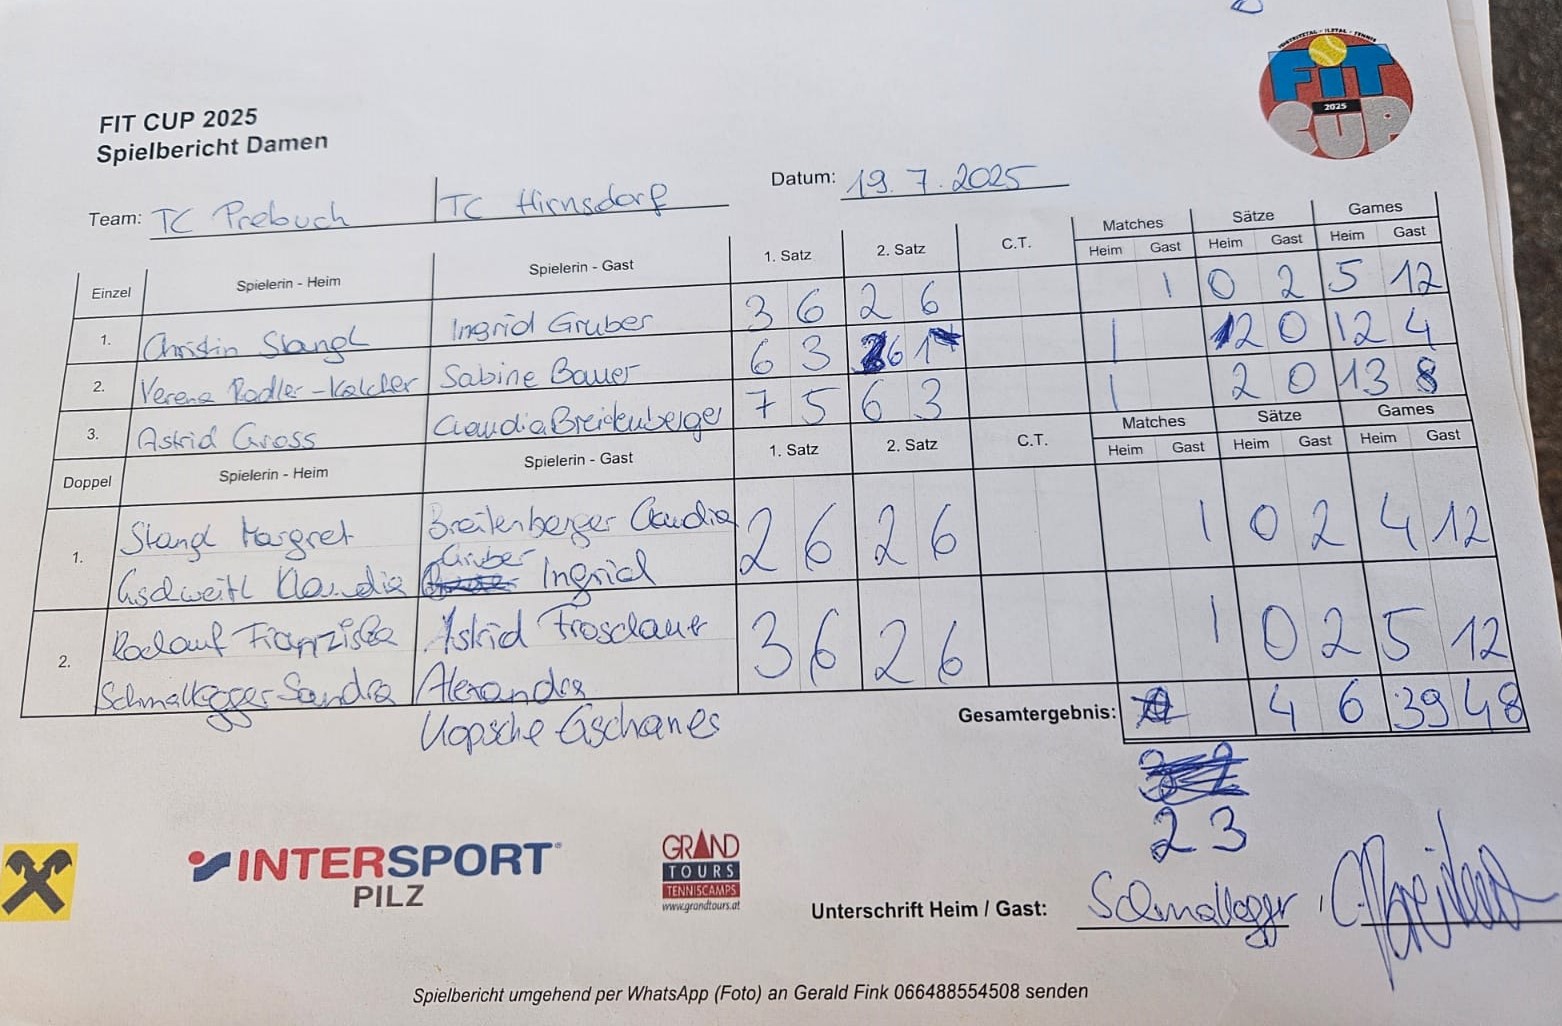 FIT CUP 2025
Spielbericht Damen
FIT
2025
CUP
Team: TC Prebuch TC Hirnsdorf
Datum: 19.7.2025
Matches Sätze Games
Einzel Spielerin - Heim Spielerin - Gast 1. Satz 2. Satz C.T. Heim Gast Heim Gast Heim Gast
1. Christin Stangl Ingrid Gruber 3 6 2 6 1 0 2 5 12
2. Verena Rodler-Kalcher Sabine Bauer 6 3 6 1 1 2 0 12 4
3. Astrid Gross Claudia Breidenberger 7 5 6 3 1 2 0 13 8
Matches Sätze Games
Doppel Spielerin - Heim Spielerin - Gast 1. Satz 2. Satz C.T. Heim Gast Heim Gast Heim Gast
1. Stangl Margret Breitenberger Claudia 2 6 2 6 1 0 2 4 12
Gschweitl Klaudia Gruber Ingrid
2. Rodlauf Franziska Astrid Froschauer 3 6 2 6 1 0 2 5 12
Schmallegger Sandra Alexandra
Kopsche Gschanes
Gesamtergebnis: 4 6 39 48
2 3
INTERSPORT
PILZ
GRAND
TOURS
TENNISCAMPS
www.grandtours.at
Unterschrift Heim / Gast: Schmallegger
Spielbericht umgehend per WhatsApp (Foto) an Gerald Fink 066488554508 senden